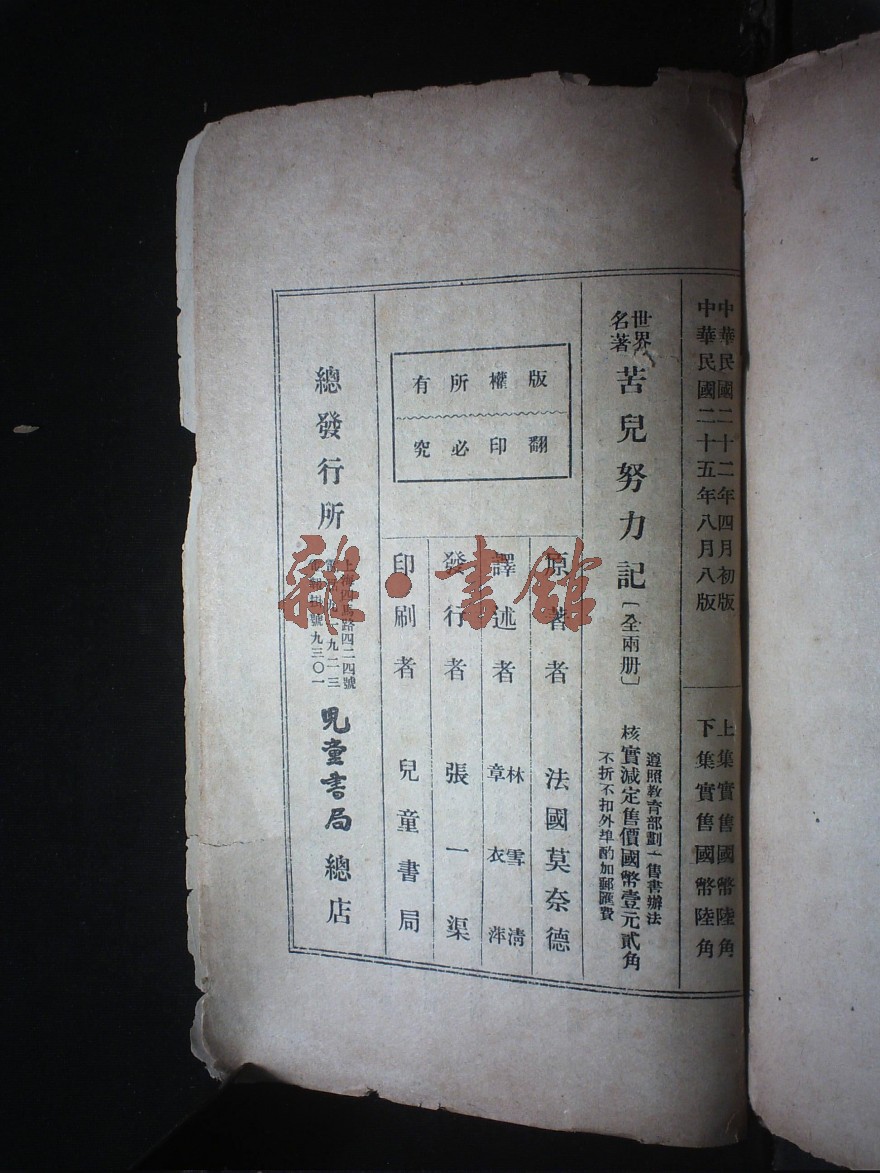 中華民國二十二年四月初版
中華民國二十五年八月八版
上集實售國幣陸角
下集實售國幣陸角
世界名著
苦兒努力記〔全兩册〕
遵照教育部劃一售書辦法
核實減定售價國幣壹元貳角
不折不扣外埠酌加郵匯費
版權所有
翻印必究
原著者 法國莫奈德
譯述者 林雪清 章衣萍
發行者 張一渠
印刷者 兒童書局
總發行所
上海四馬路四二四號
九一九二三
電報掛號九三〇一
兒童書局 總店
雜·書館